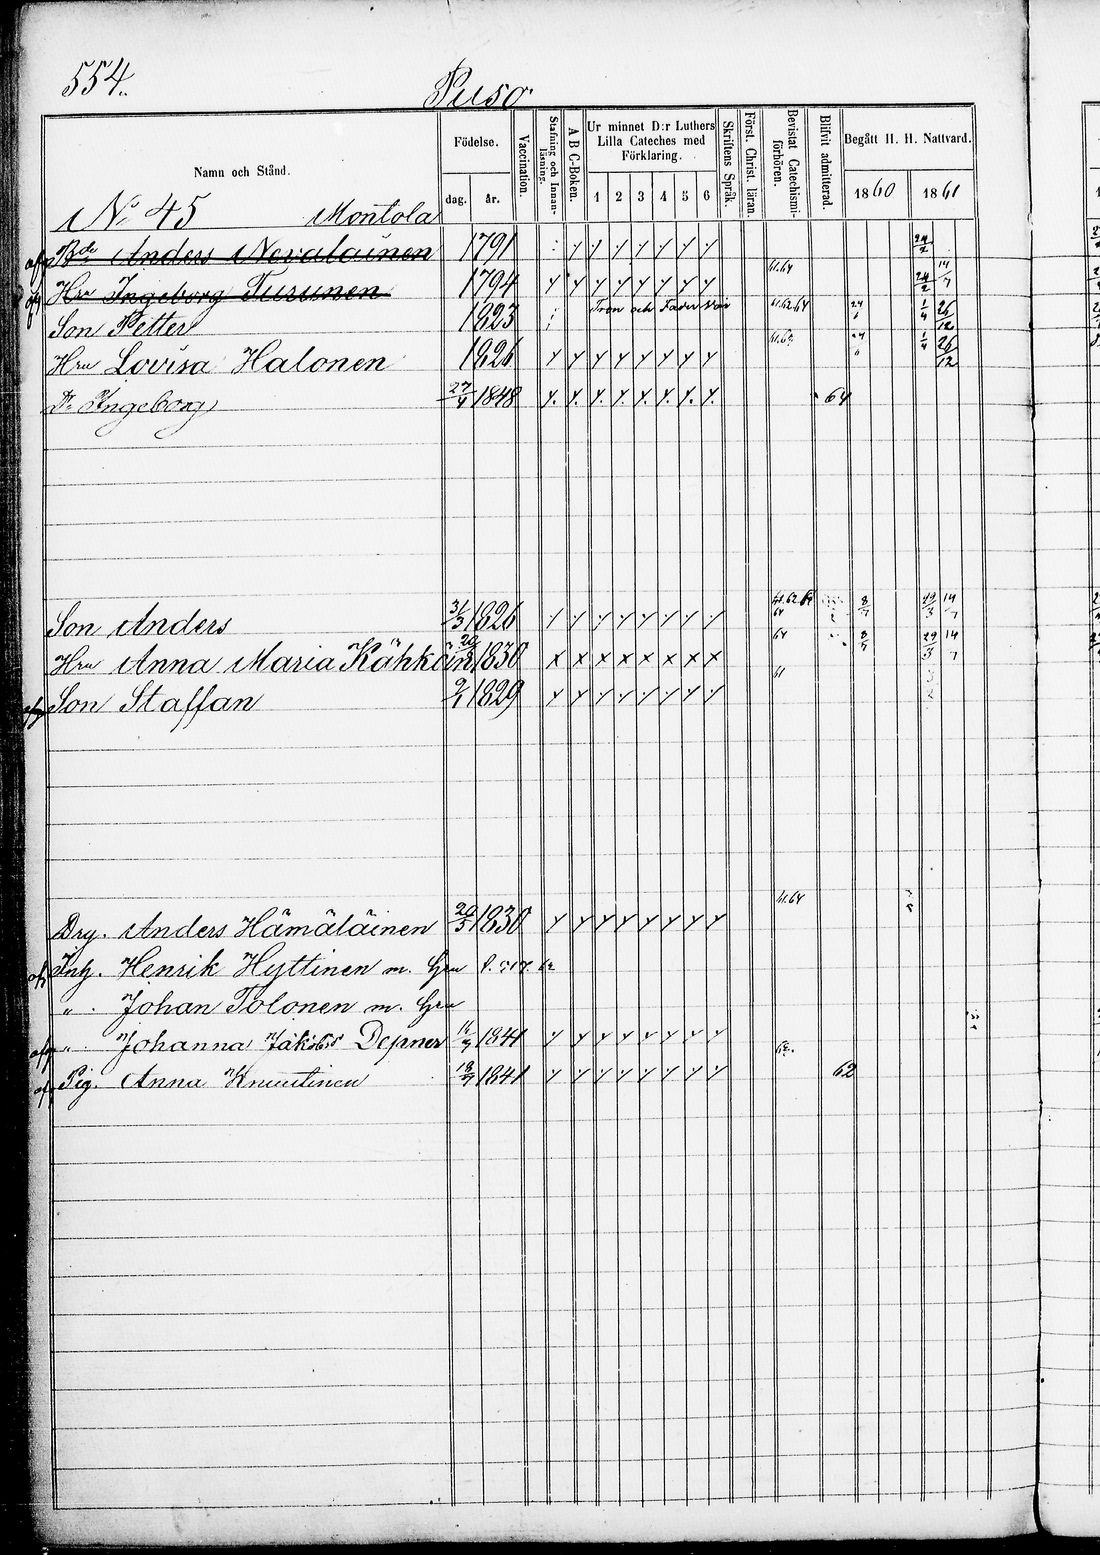 554.
Puso
Namn och Stånd.
Födelse.
dag. år.
Vaccination.
Stafning och Innan-läsning.
A B C-Boken.
Ur minnet D:r Luthers Lilla Cateches med Förklaring.
1 2 3 4 5 6
Skriftens Språk.
Först. Christ. läran.
Bevistat Catechismi-förhören.
Blifvit admitterad.
Begått H. H. Nattvard.
1860 1861
No 45 Montola
Bde Anders Nevalainen 1791 24/2
Hru Ingeborg Turunen 1794 61.64 24/2 14/7
Son Petter 1823 Tron och Fader Vår 61.62.64 1/4 26/12
Hru Lovisa Halonen 1826 1/4 26/12
Dr Ingeborg 27/4 1848 64
Son Anders 31/3 1826 61.62 64 8/7 29/3 14/7
Hru Anna Maria Kähköin 20/8 1830 64 8/7 29/3 14/7
Son Staffan 2/1 1829 61
Drg. Anders Hämäläinen 20/5 1830 61.64
Inh. Henrik Hyttinen m. hru
" Johan Tolonen m. hru
" Johanna Jakobsd Depner 1841
Pig. Anna Knuutinen 18/7 1841 62